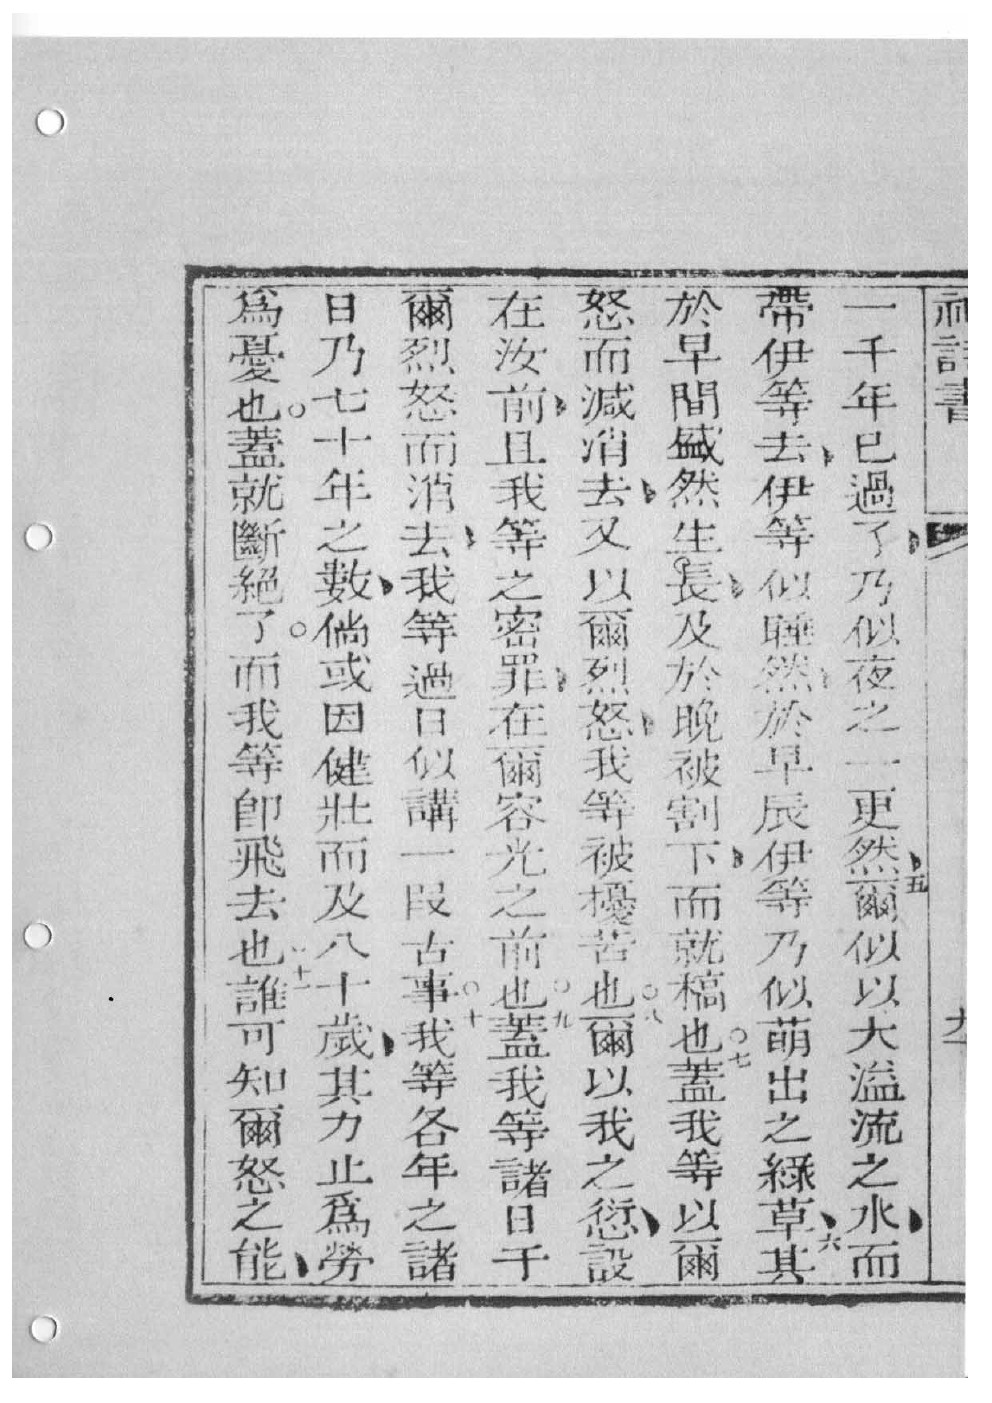 神詩書
一千年已過了乃似夜之一更然五爾似以大溢流之水而
帶伊等去伊等似睡然於早辰伊等乃似萌出之綠草六其
於早間盛然生長及於晚被割下而就槁也。七蓋我等以爾
怒而減消去又以爾烈怒我等被擾苦也。八爾以我之愆設
在汝前且我等之密罪在爾容光之前也。九蓋我等諸日于
爾烈怒而消去我等過日似講一段古事。十我等各年之諸
日乃七十年之數倘或因健壯而及八十歲其力止為勞
為憂也。蓋就斷絕了。而我等即飛去也十一誰可知爾怒之能